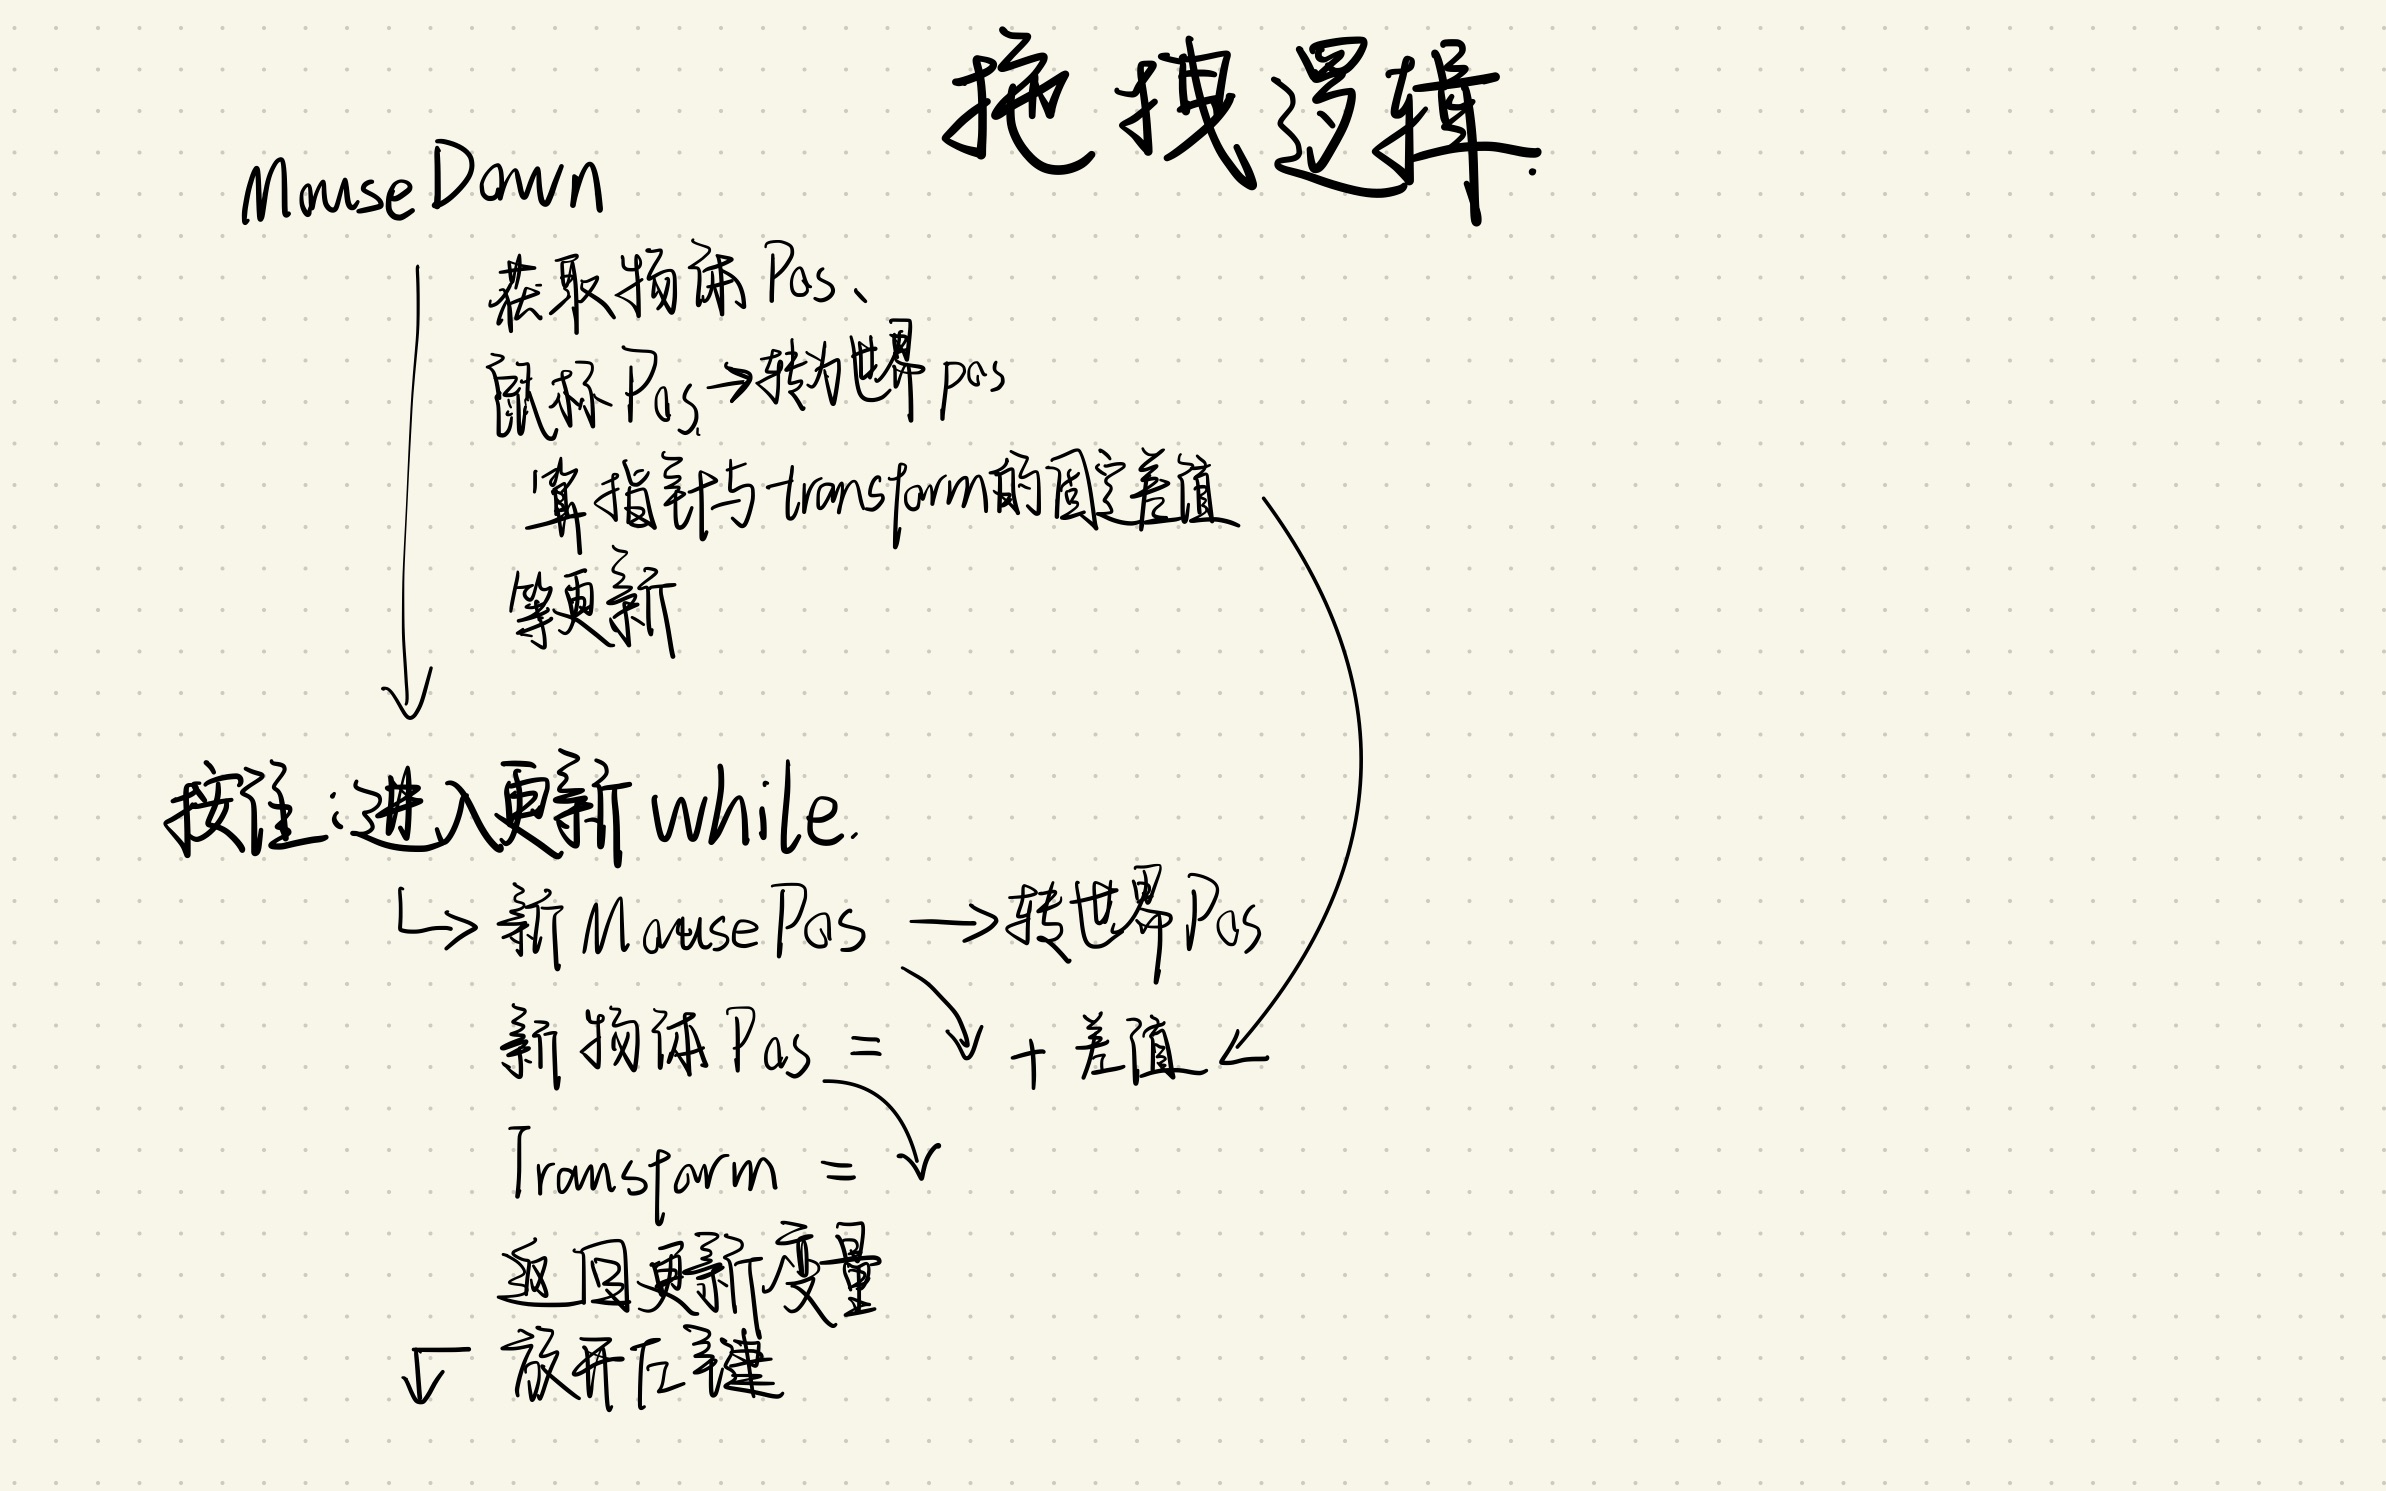 拖拽逻辑.
MouseDown
获取物体Pos、
鼠标Pos→转为世界pos
算指针与transform的固定差值
等更新
按住:进入更新while.
新MousePos →转世界Pos
新物体Pos = + 差值
Transform =
返回更新变量
放开左键